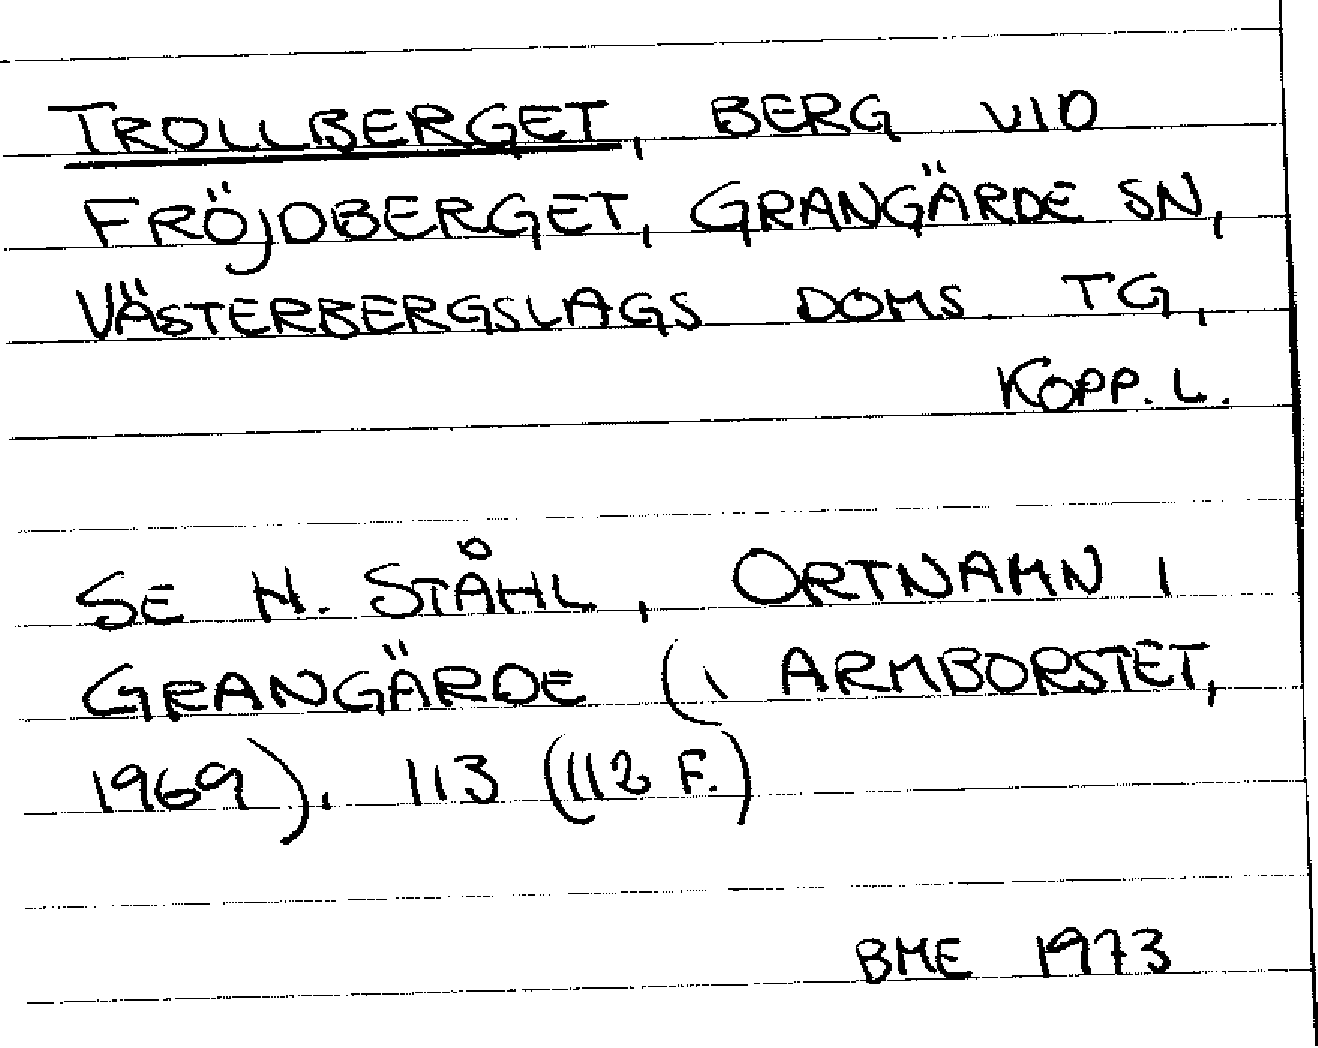 TROLLBERGET, BERG VID
FRÖJDBERGET, GRANGÄRDE SN,
VÄSTERBERGSLAGS DOMS TG,
KOPP. L.
SE H. STÅHL, ORTNAMN I
GRANGÄRDE (I ARMBORSTET,
1969). 113 (112 F.)
BME 1973